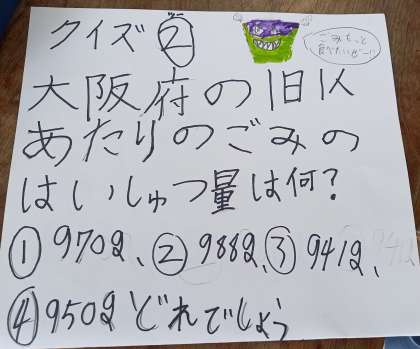 クイズ②
ごみもっと
食べたいぜー!!
大阪府の1日1人
あたりのごみの
はいしゅつ量は何?
①970g、②988g、③941g、
④950gどれでしょう